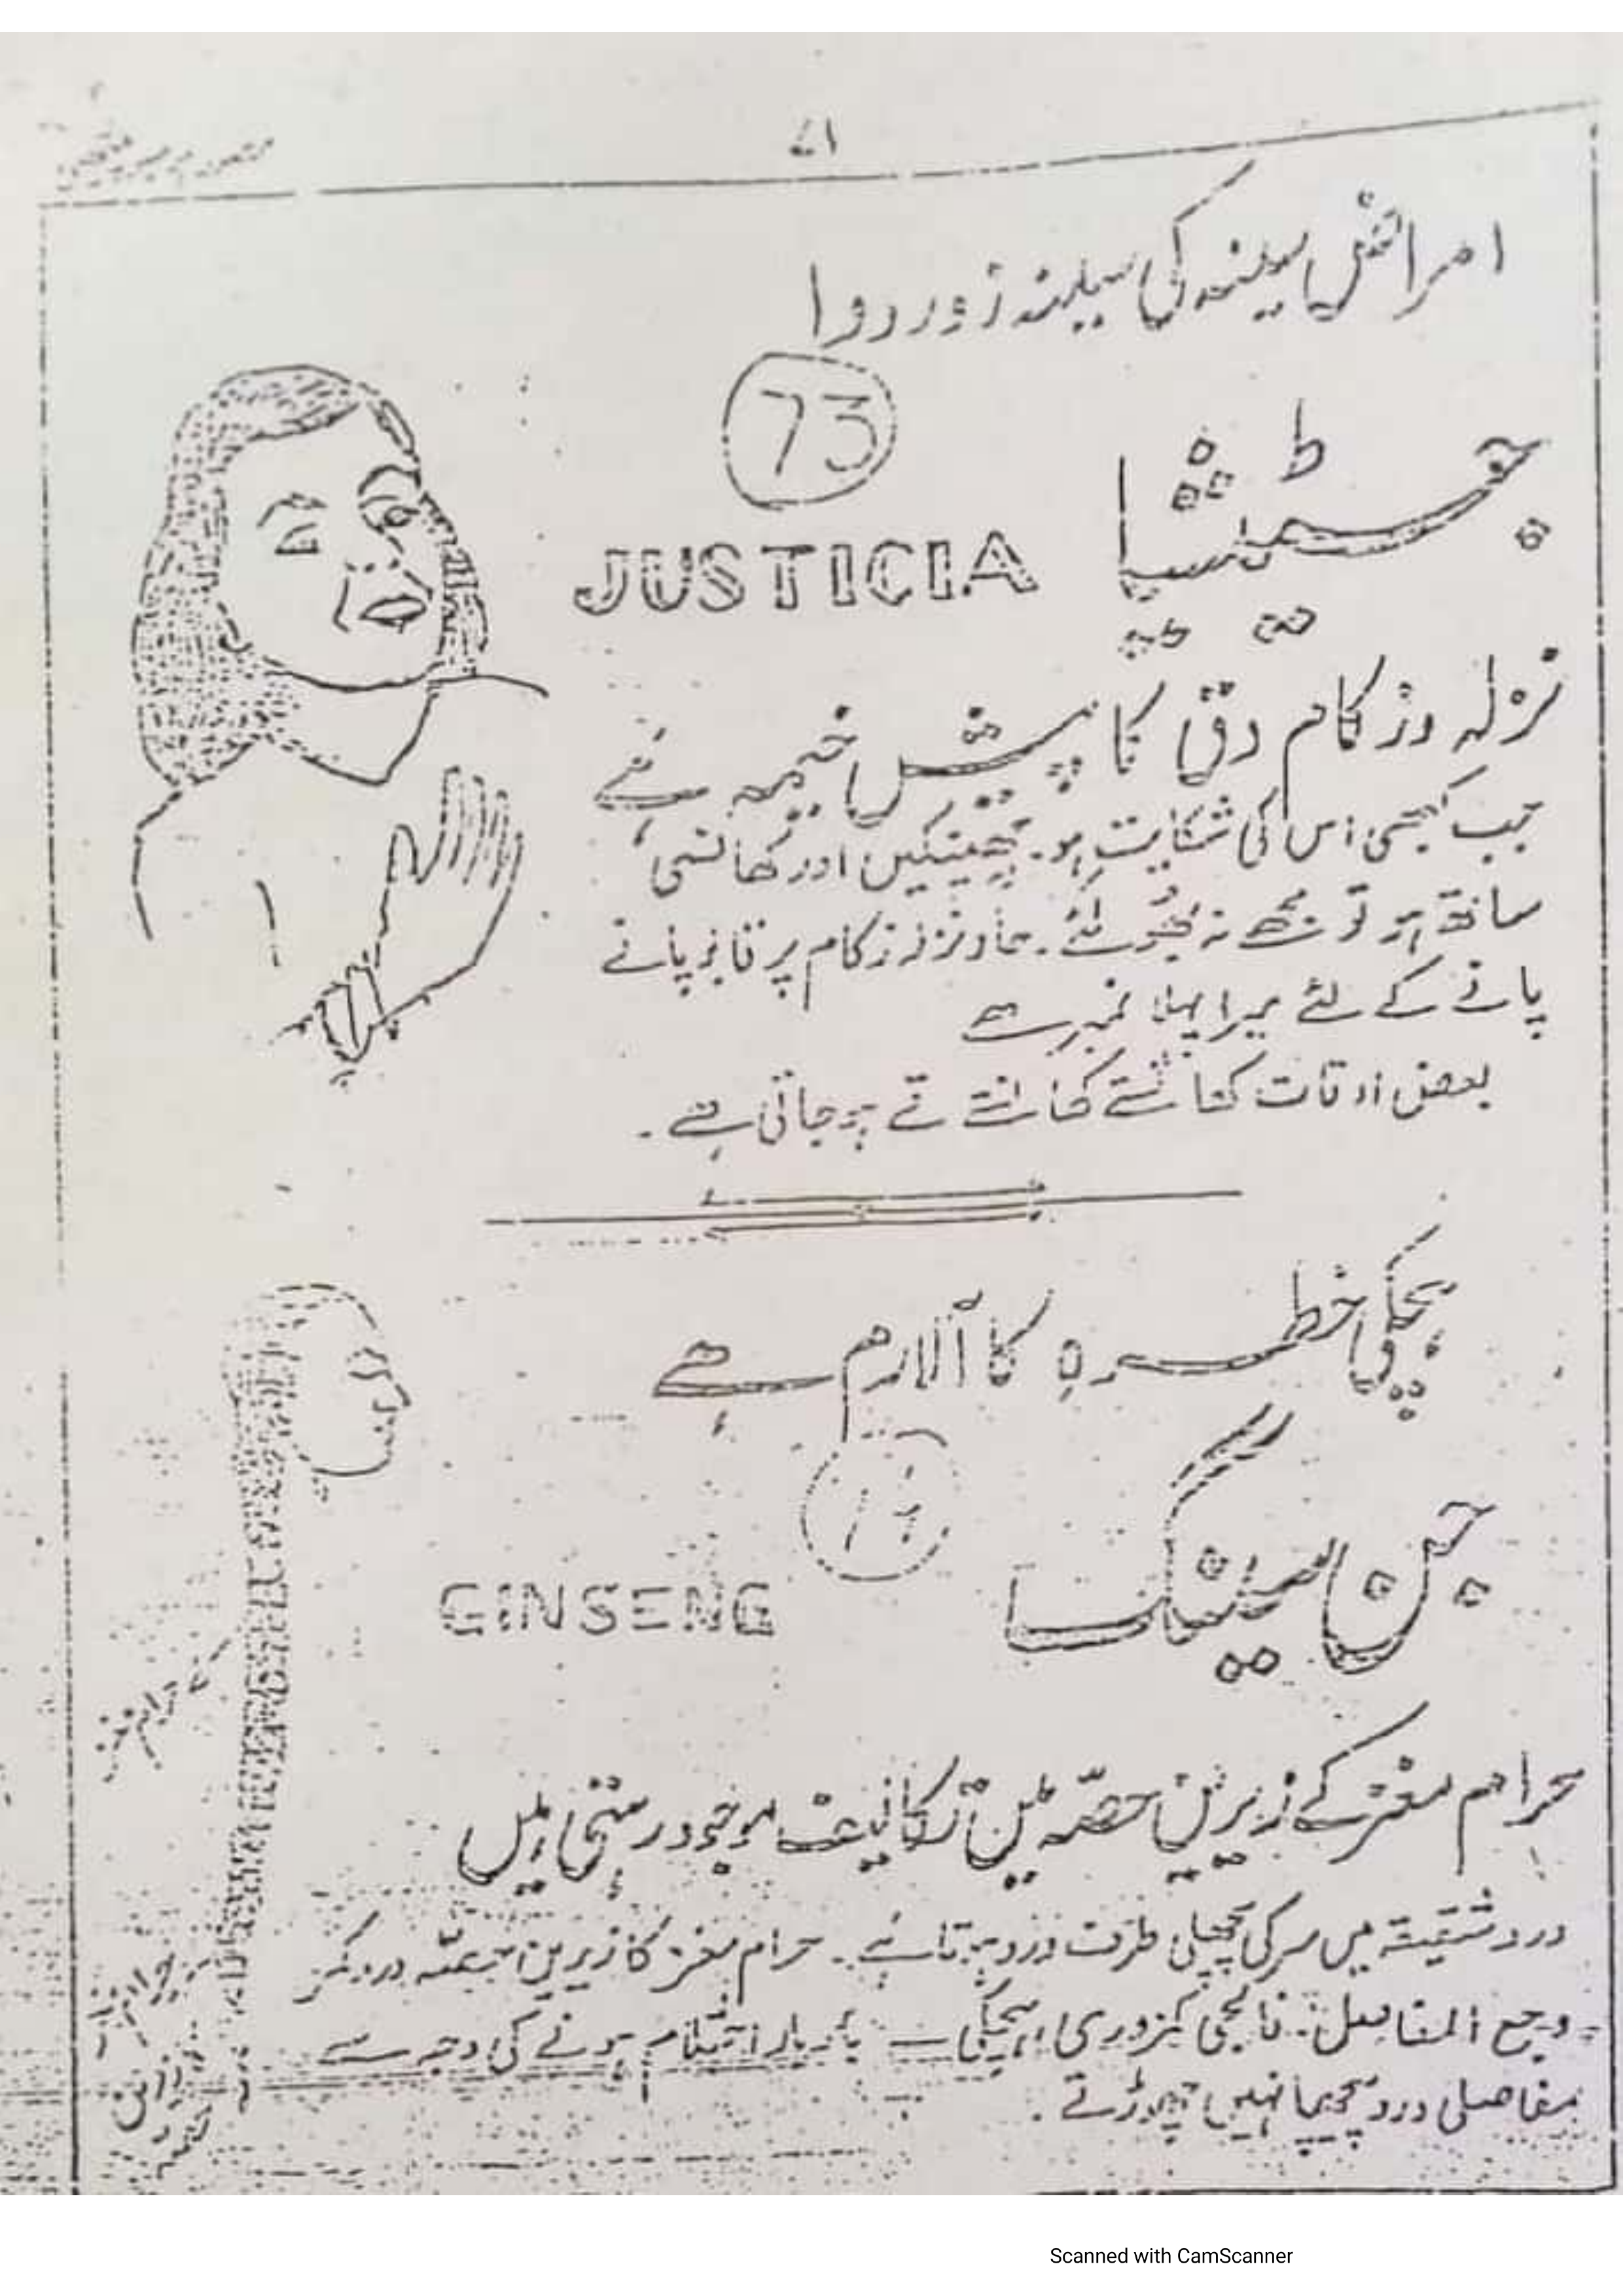 ۷۱
امراض سینہ کی سینہ زور دوا
73
جسٹیشیا
JUSTICIA
نزلہ و زکام دق کا پیش خیمہ ہے
جب کبھی اس کی شکایت ہو۔ چھینکیں اور کھانسی
ساتھ ہو تو مجھے نہ بھولئے۔ نزلہ زکام پر قابو پانے
پانے کے لئے میرا پہلا نمبر ہے
بعض اوقات کھانستے کھانستے قے ہو جاتی ہے۔
ہچکی خطرہ کا آلارم ہے
جن سینگ
GINSENG
حرام مغز کے زیریں حصہ میں رکانیت موجود رہتی ہیں
درد شقیقہ میں سر کی پچھلی طرف درد ہوتا ہے۔ حرام مغز کا زیریں حصہ
وجع المفاصل۔ فالجی کمزوری، ہچکی بار بار ہونے کی وجہ سے
مفاصلی درد پیچھا نہیں چھوڑتے۔
Scanned with CamScanner